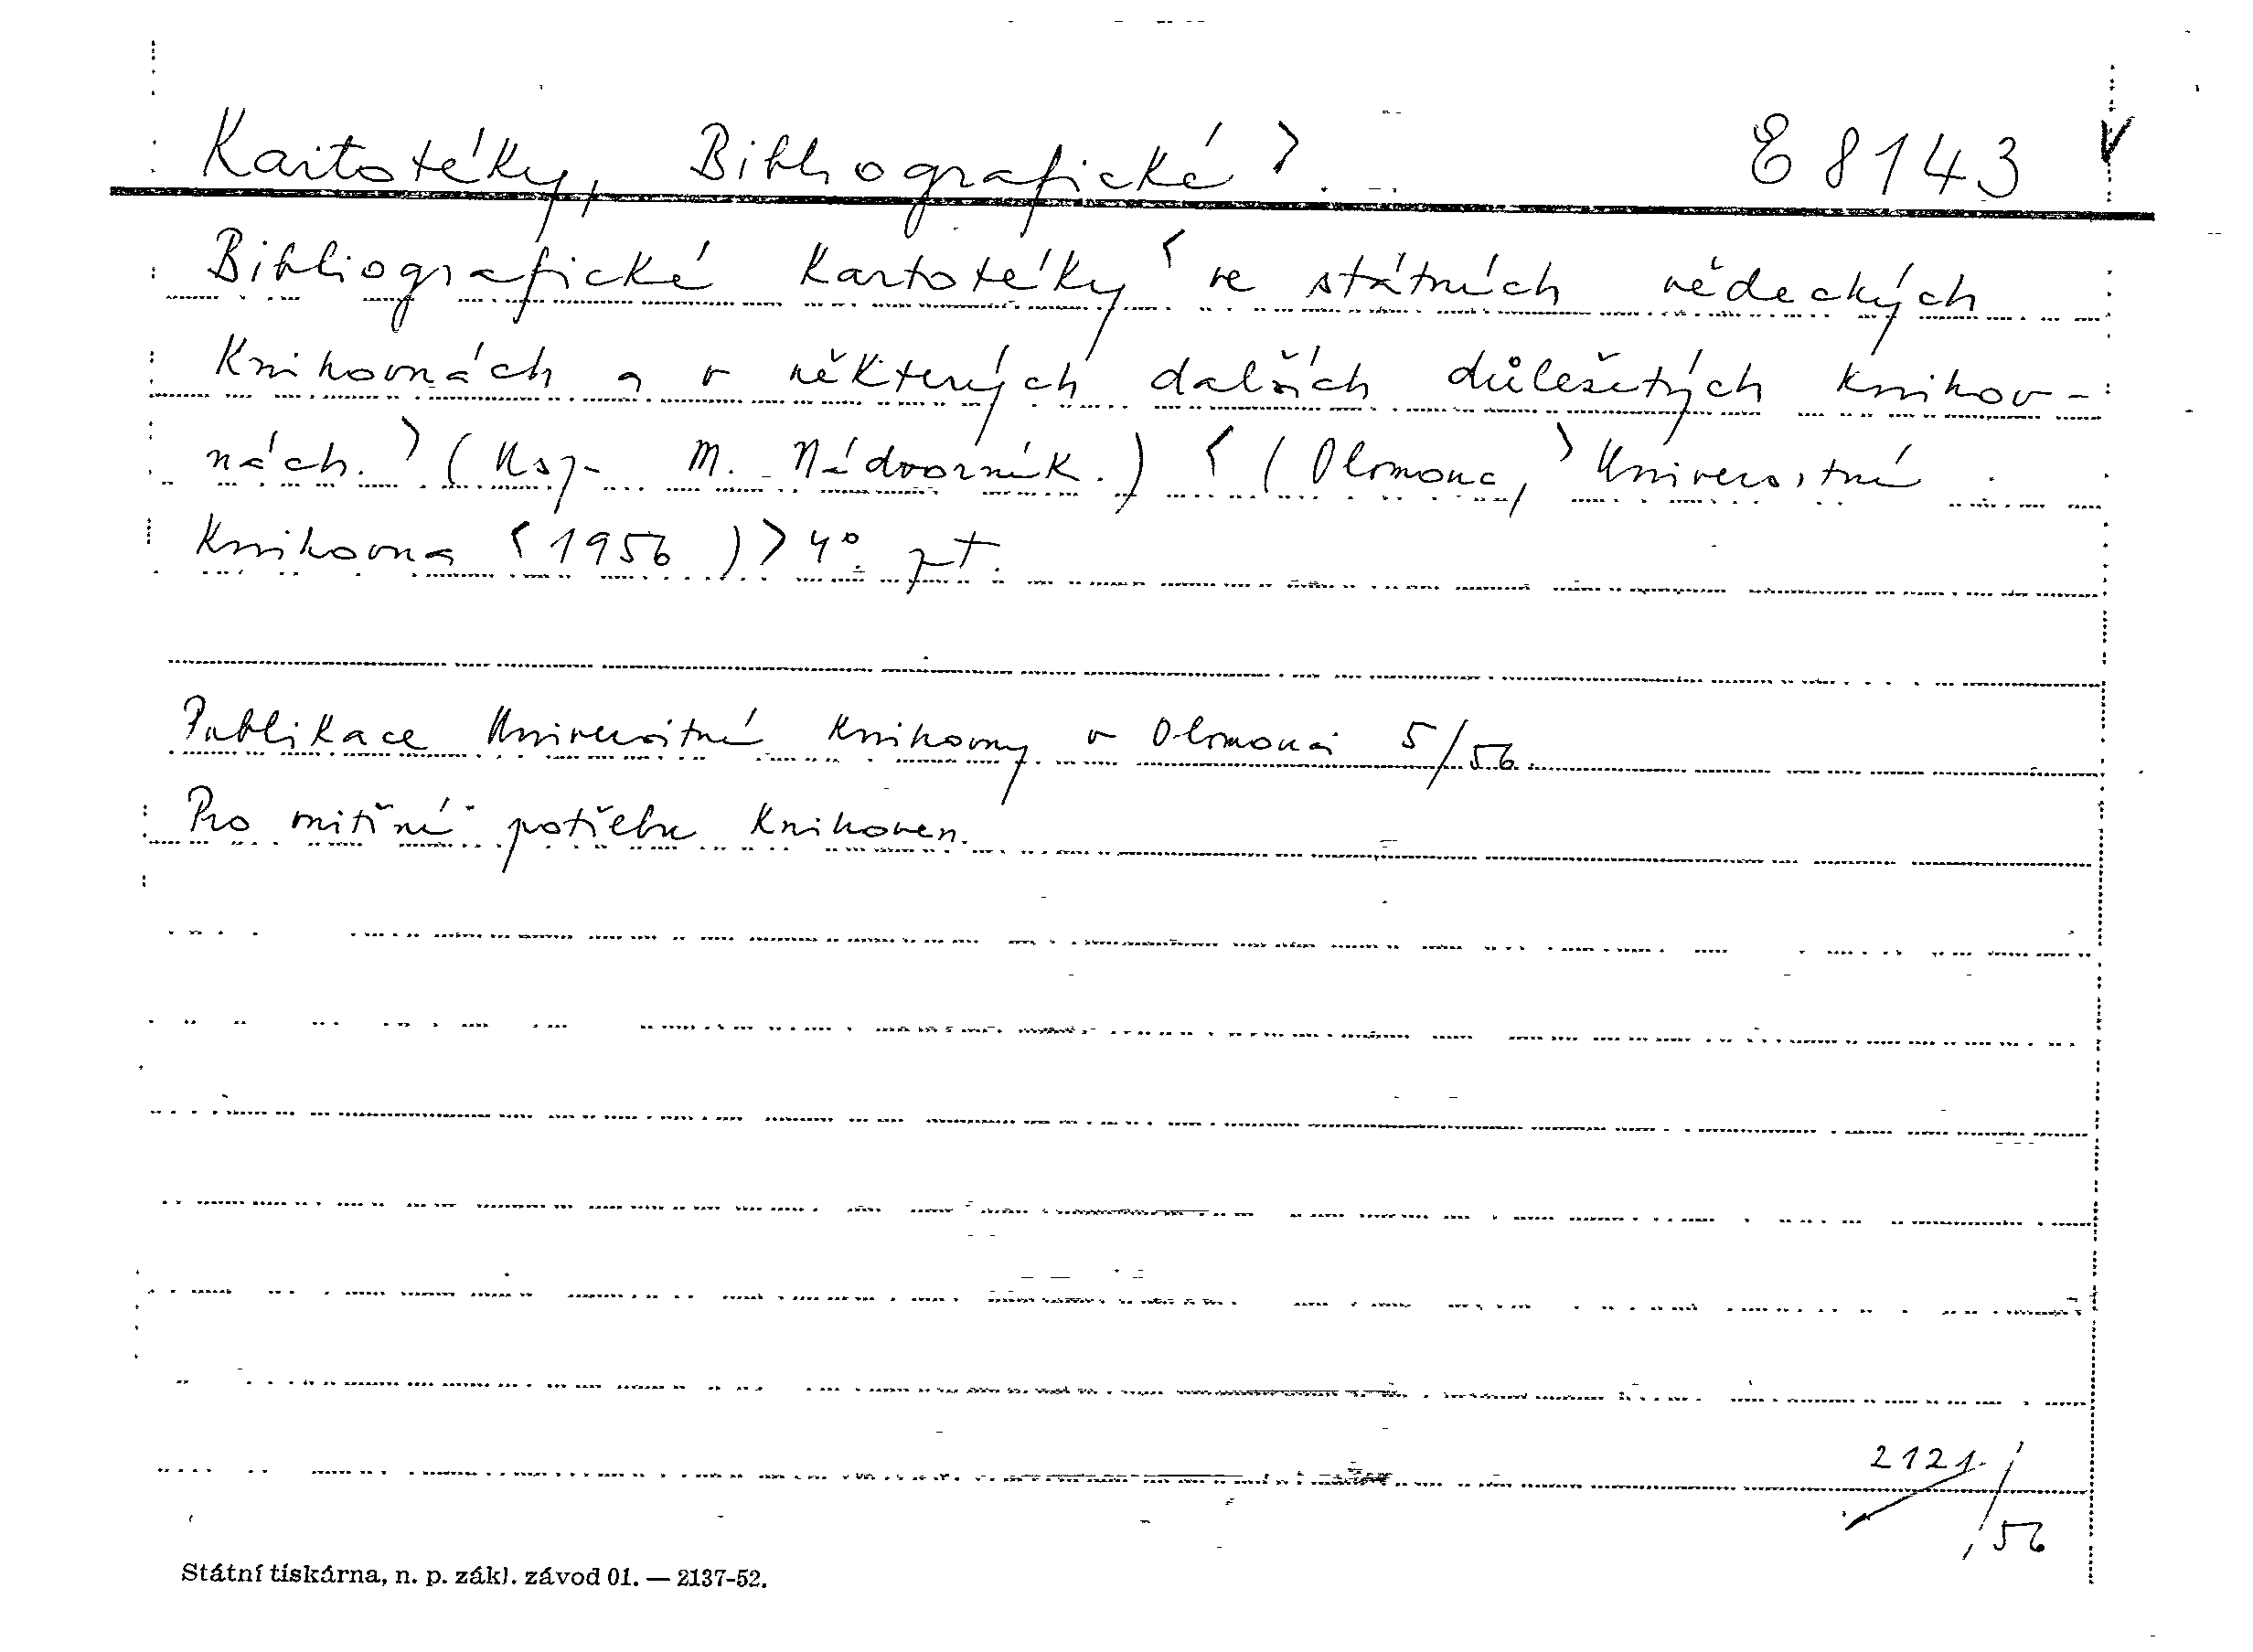 Kartotéky, Bibliografické > E 8143
Bibliografické kartotéky < ve státních vědeckých
knihovnách a v některých dalších důležitých knihov-
nách. > (Usp. M. Nádvorník.) < (Olomouc, > Universitní
knihovna < 1956 ) > 4° 
Publikace Universitní knihovny v Olomouci 5/56.
Pro vnitřní potřebu knihoven.
2121/
56
Státní tiskárna, n. p. zákl. závod 01. — 2137-52.